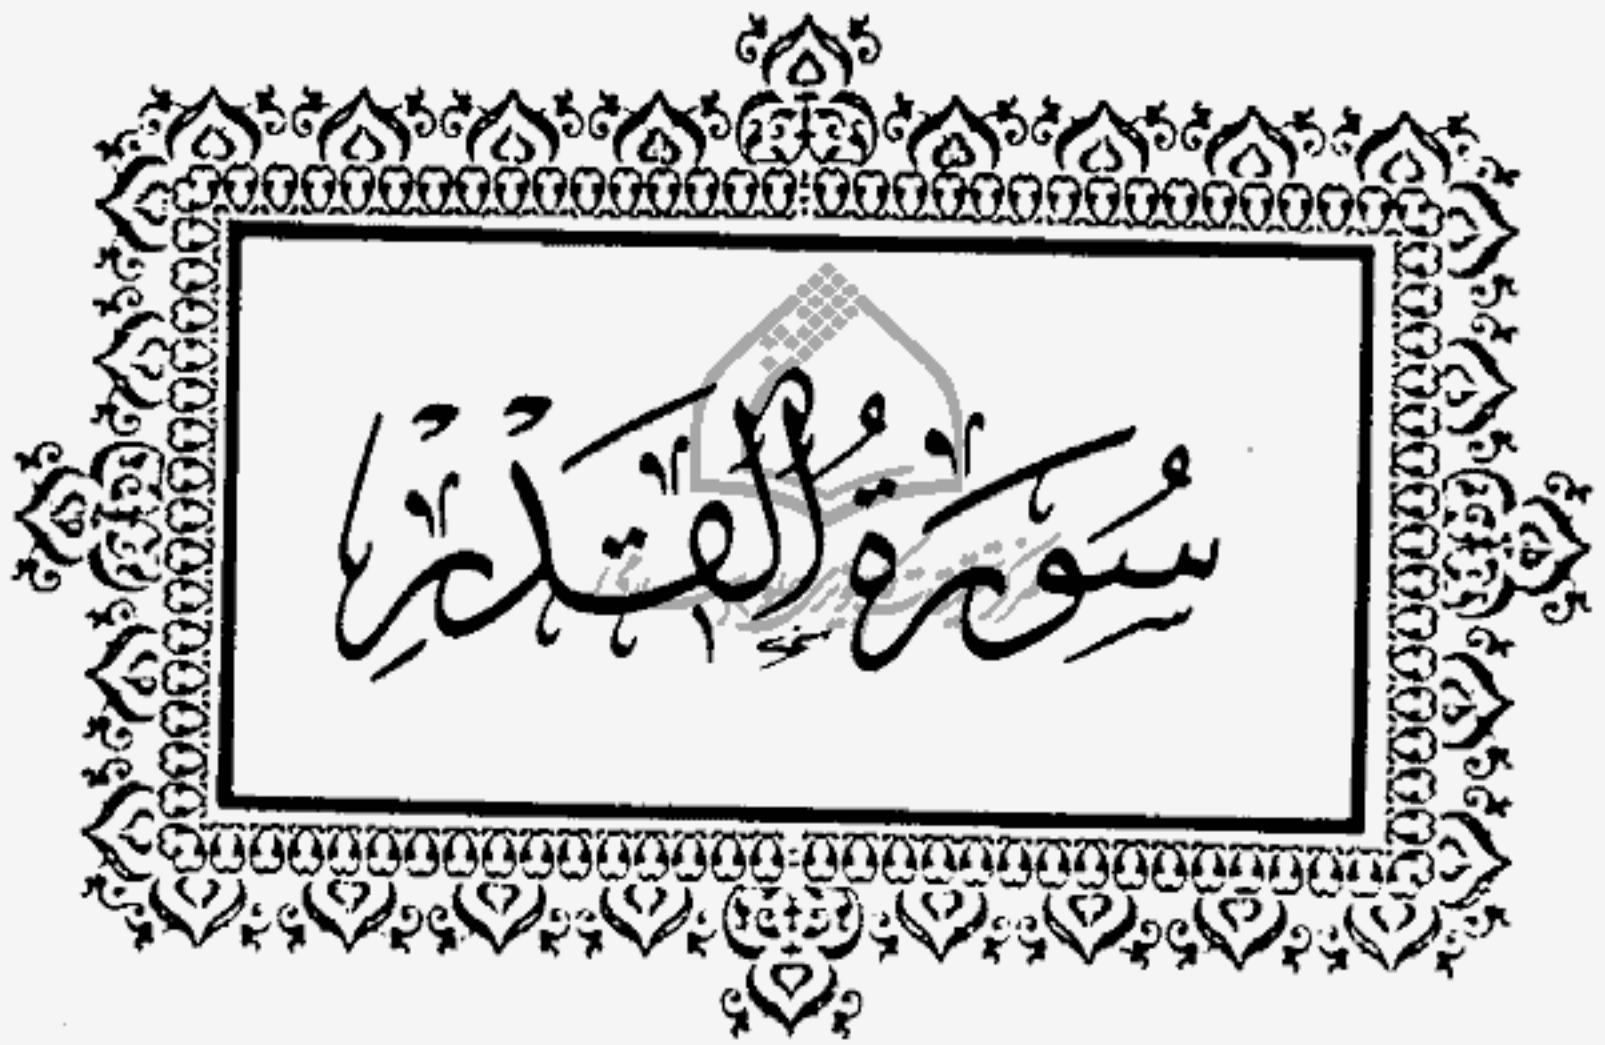 سُورَةُ الْقَدْرِ